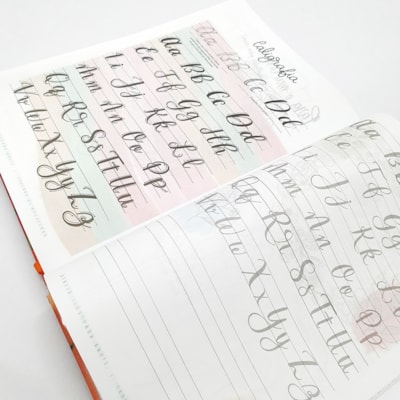 caligrafia
Aa Bb Cc Dd
Aa Bb Cc Dd
Ee Ff Gg Hh
Ii Jj Kk Ll
Mm Nn Oo Pp
Qq Rr Ss Tt Uu
Vv Ww Xx Yy Zz
Aa Bb
Ee Ff Gg
Ii Jj Kk Ll
Mm Nn Oo Pp
Qq Rr Ss Tt Uu
Vv Ww Xx Yy Zz